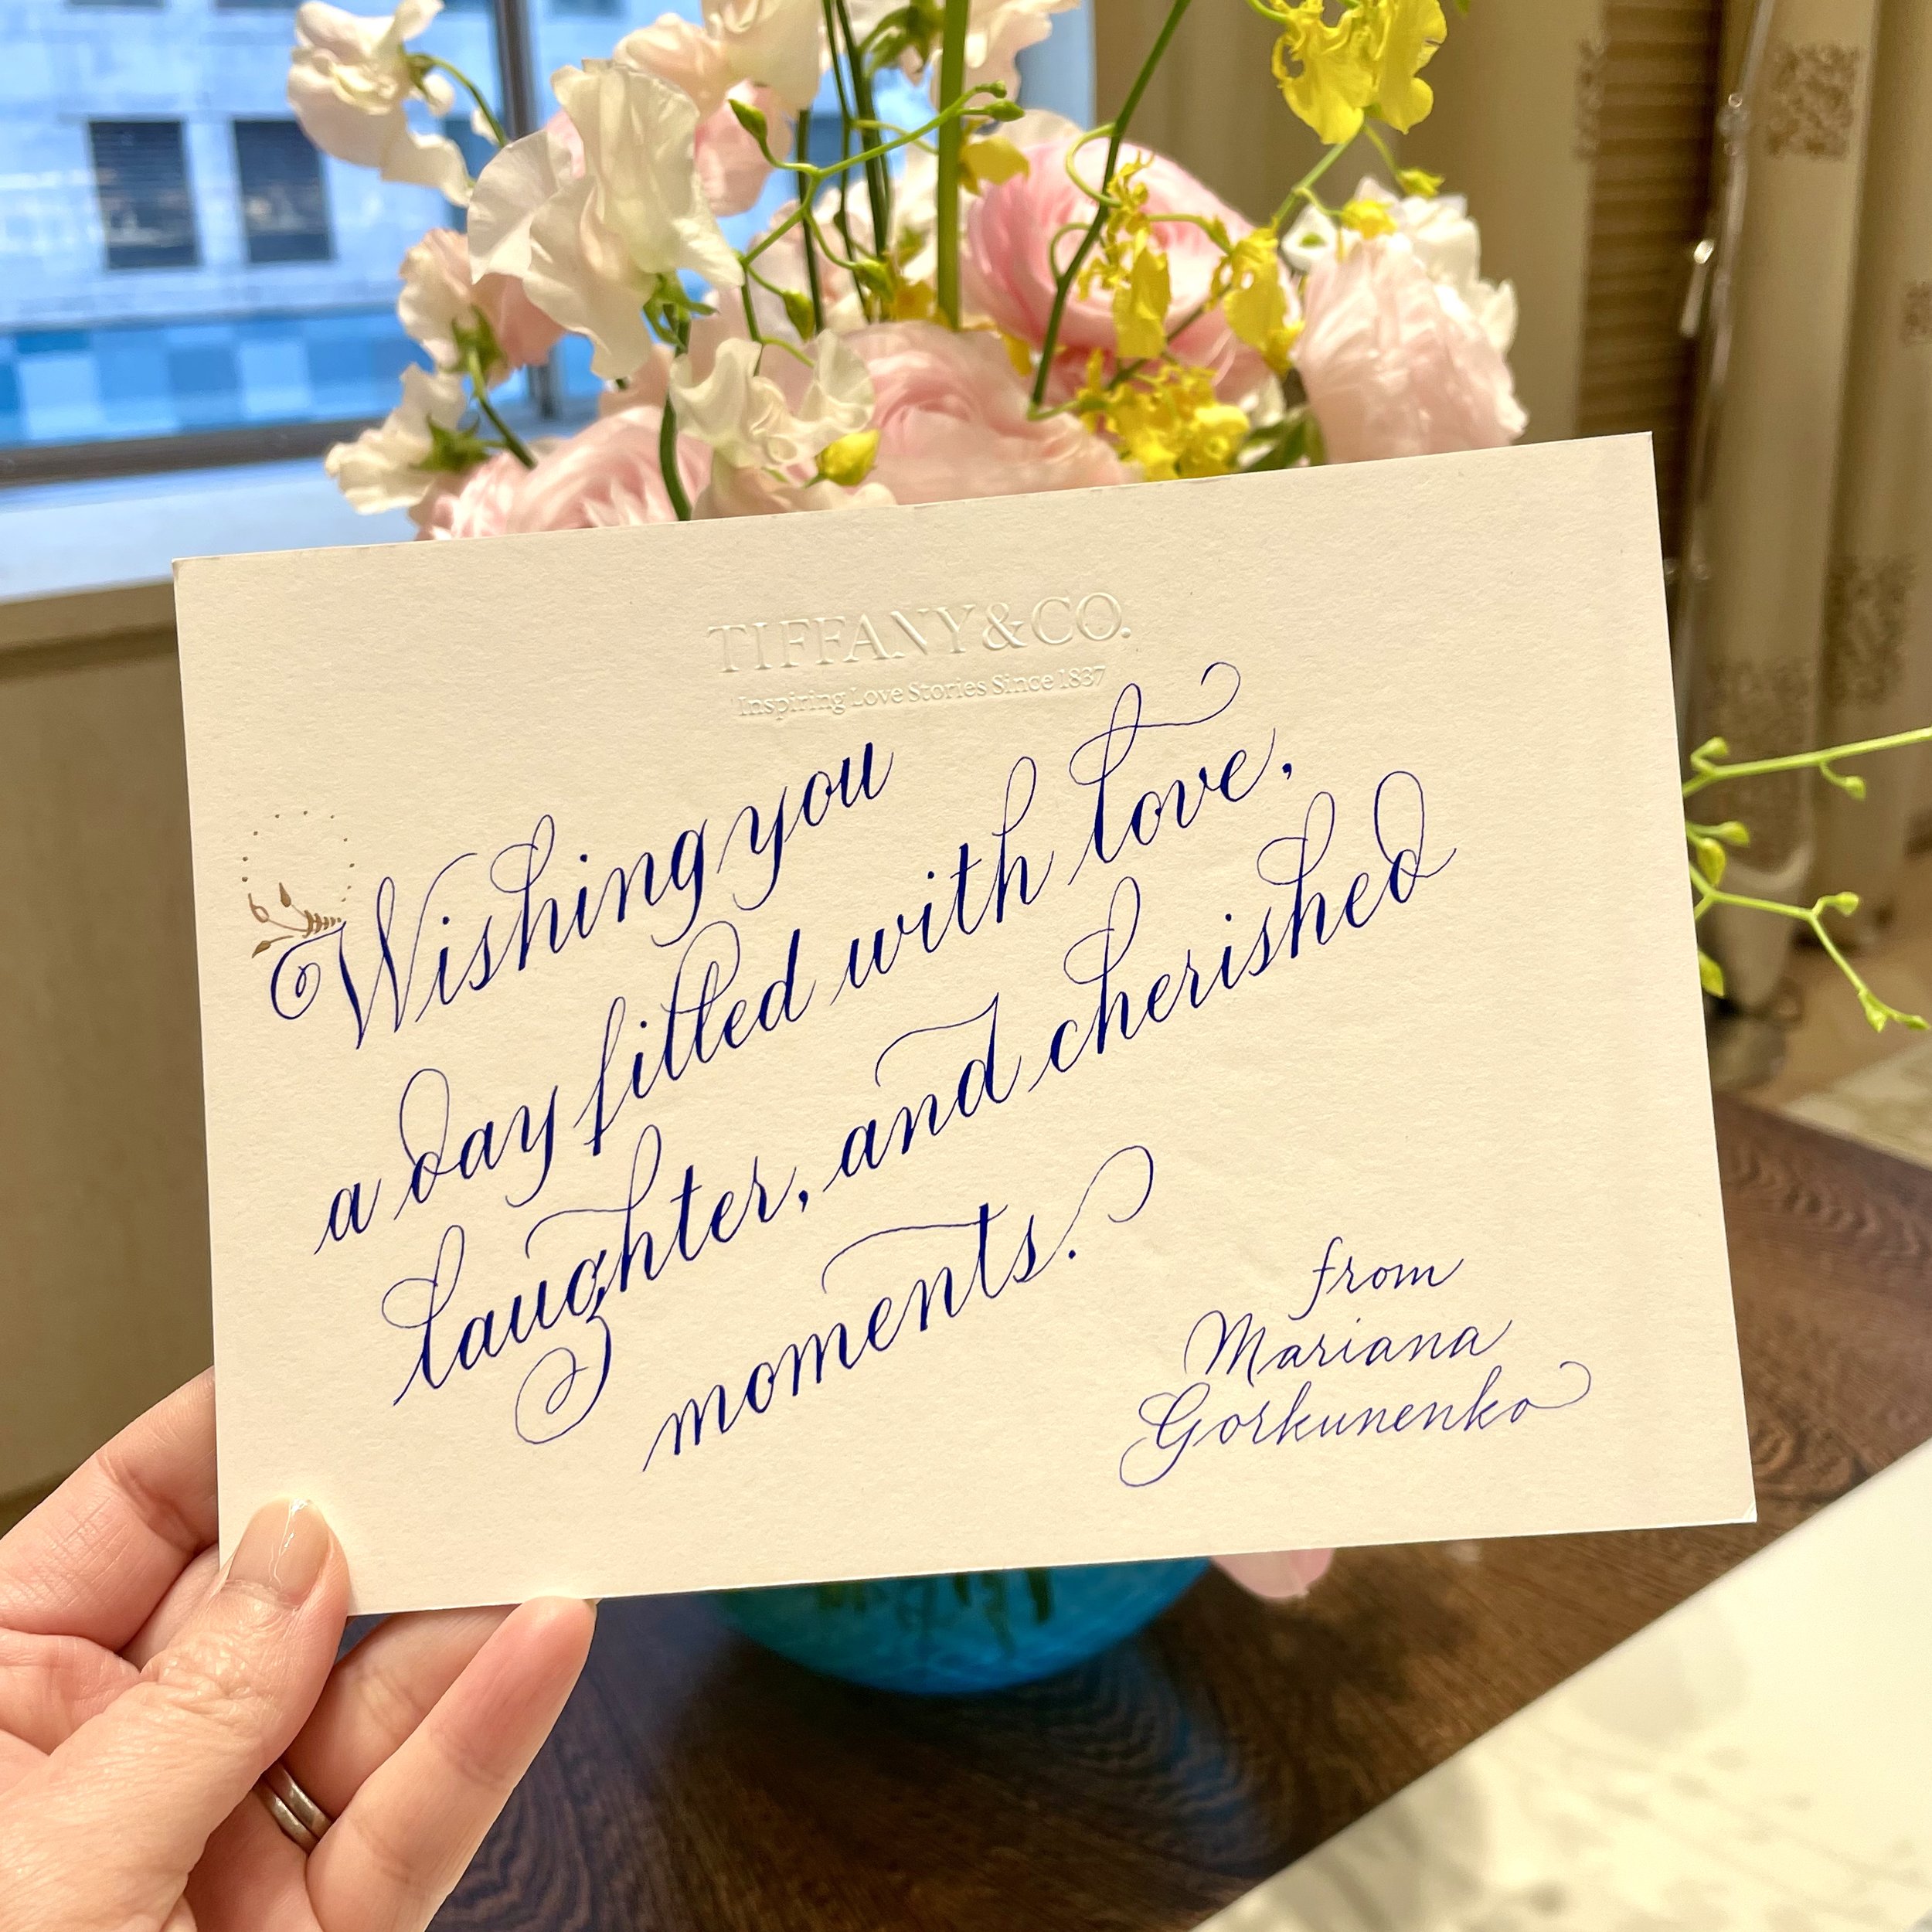 TIFFANY&CO.
Inspiring Love Stories Since 1837
Wishing you
a day filled with love,
laughter, and cherished
moments.
from
Mariana
Gorkunenko